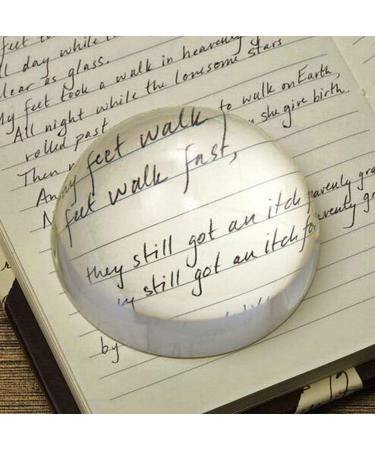 feet to
ll day while t
lear as glass.
My feet took a walk in heavenly g
All night while the lonesome stars
rolled past
Then to walk on Earth,
she give birth.
feet walk
feet walk fast,
they still got an itch heavenly gra
still got an itch fo heavenly gra
by